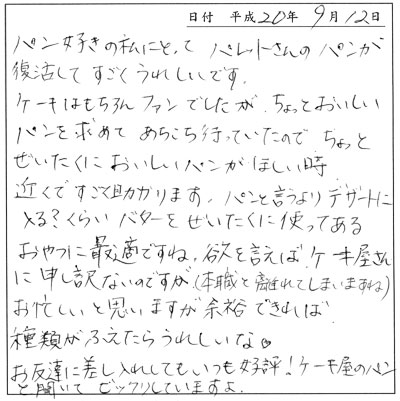 日付 平成20年 9月12日
パン好きの私にとって パレットさんのパンが
復活して すごくうれしいです。
ケーキはもちろん ファンでしたが、ちょっとおいしい
パンを求めて あちこち行っていたので ちょっと
ぜいたくに おいしいパンが ほしい時
近くですごく助かります。パンと言うより デザートに
入る?くらい バターを ぜいたくに使ってある
おやつに 最適ですね。欲を言えば ケーキ屋さん
に申し訳ないのですが(本職と離れてしまいますね)
お忙しいと思いますが余裕できれば
種類が ふえたらうれしいな
お友達に差し入れしてもいつも好評!ケーキ屋のパン
と聞いて ビックリしていますよ。